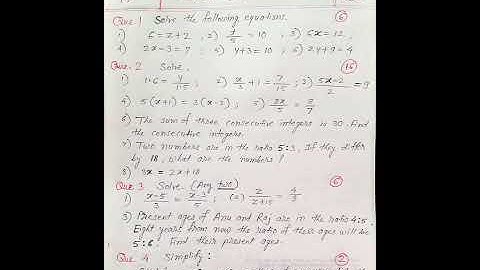 Que. 1 Solve the following equations. (6)
1) 6 = z + 2 , 2) x/5 = 10 , 3) 6x = 12,
4) 2x - 3 = 7 ; 5) y + 3 = 10 ; 6) 2y + 9 = 4
Que. 2 Solve. (16)
1) 1.6 = y/1.5 ; 2) x/3 + 1 = 7/15 ; 3) 5x - 2/2 = 9
4) 5(x+1) = 3(x-2) ; 5) 3x/5 = 2/7
6) The sum of three consecutive integers is 30. Find
the consecutive integers.
7) Two numbers are in the ratio 5:3. If they differ
by 18, what are the numbers ?
8) 3x = 2x + 18
Que 3 Solve. (Any two) (6)
1) x-5/3 = x-3/5 ; (2) z/z+15 = 4/9
3) Present ages of Anu and Raj are in the ratio 4:5.
Eight years from now the ratio of their ages will be
5:6. Find their present ages.
Que. 4 Simplify : (2)